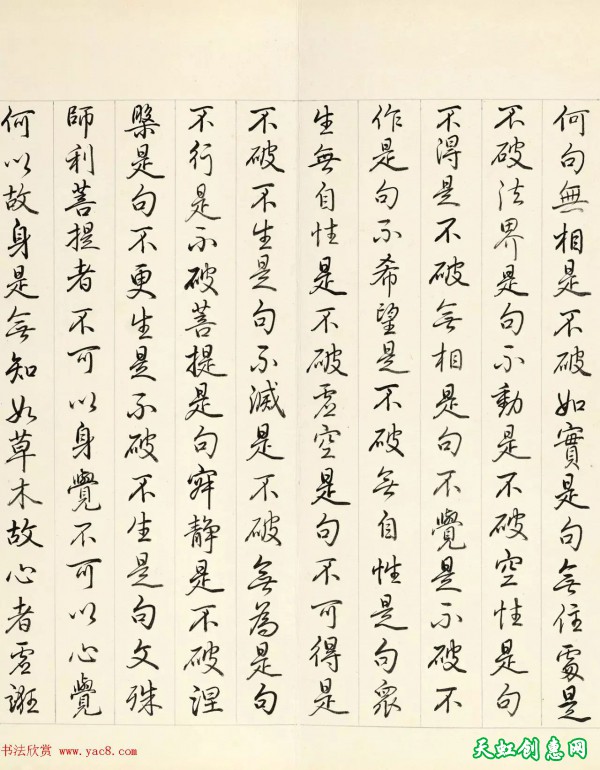 何句無相是不破如實是句無住處是
不破法界是句不動是不破空性是句
不得是不破無相是句不覺是不破不
作是句不希望是不破無自性是句眾
生無自性是不破虛空是句不可得是
不破不生是句不滅是不破無為是句
不行是不破菩提是句寂静是不破涅
槃是句不更生是不破不生是句文殊
師利菩提者不可以身覺不可以心覺
何以故身是無知如草木故心者虛誑
书法欣赏 www.yac8.com
天虹创惠网